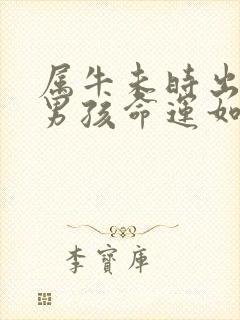 属牛未时出
男孩命运如
李寶庫